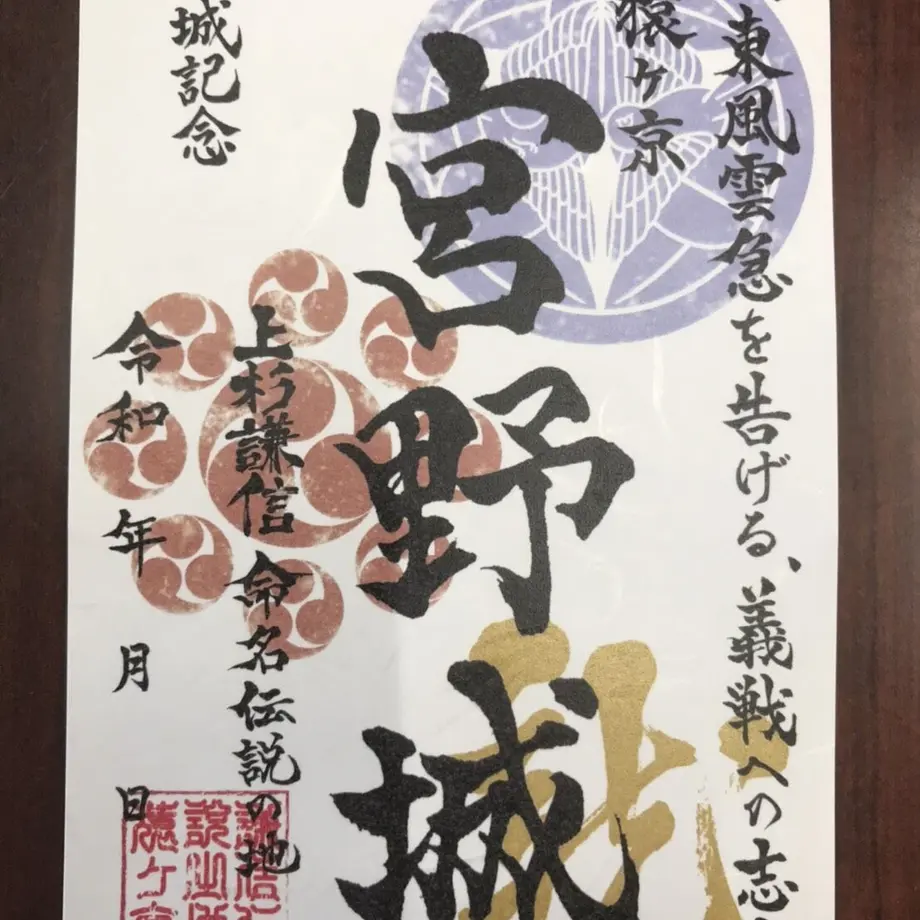 東風雲急を告げる、義戦への志
猿ヶ京
宮野城
上杉謙信 命名伝説の地
城記念
令和 年 月 日